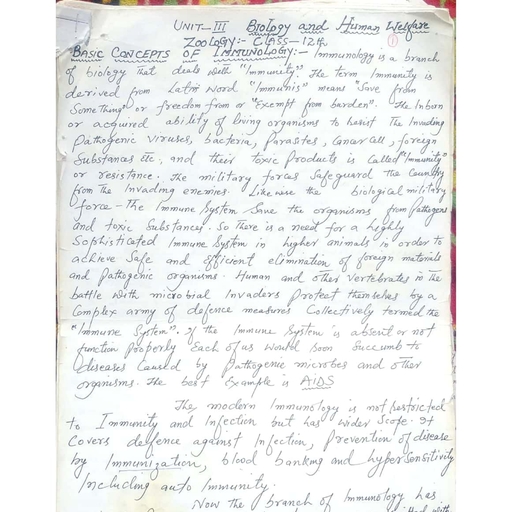 UNIT-III Biology and Human Welfare
Zoology:- Class-12th
1
BASIC CONCEPTS OF IMMUNOLOGY:- Immunology is a branch
of biology that deals with "Immunity". The term Immunity is
derived from Latin word "Immunis" means "Save from
Something" or freedom from or "Exempt from burden". The Inborn
or acquired ability of living organisms to resist The Invading
Pathogenic viruses, bacteria, Parasites, Cancer cell, foreign
Substances etc, and their Toxic Products is Called "Immunity"
or resistance. The military forces Safeguard the Country
from the Invading enemies. Like wise the biological military
force - The Immune System Save the organisms from Pathogens
and toxic Substances. So there is a need for a highly
Sophisticated Immune System in higher animals in order to
achieve Safe and efficient elimination of foreign materials
and Pathogenic organisms. Human and other vertebrates in the
battle with microbial Invaders Protect themselves by a
Complex army of defence measures Collectively termed the
"Immune System". If the Immune System is absent or not
function properly Each of us would soon Succumb to
diseases Caused by Pathogenic microbes and other
organisms. The best Example is AIDS
The modern Immunology is not restricted
to Immunity and Infection but has wider Scope. It
Covers defence against Infection, Prevention of disease
by Immunization, blood banking and hypersensitivity
Including auto Immunity.
Now the branch of Immunology has